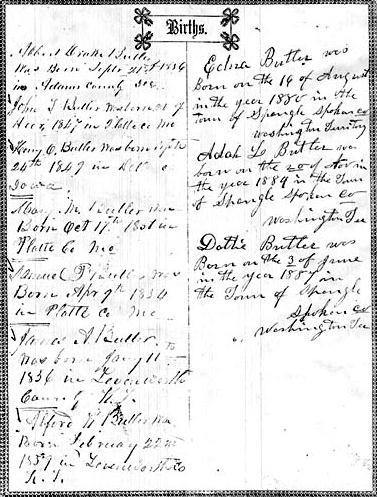 Births.
Albert Butler
Was Born Sept 21st 1836
in Adams County
John T Butler was born
1847 in Platte Mo
Henry C. Butler was born Sept
24th 1849 in
Iowa
Mary M Butler was
Born Oct 17th 1851 in
Platte Co Mo
Samuel P Butler was
Born Apr 9th 1854
in Platte co Mo
James A Butler
was born Jany 11
1856 in Levenworth
County K.T.
Alford W Butler was
Born February 22nd
1859 in Levenworth Co
K. T.
Edna Butler was
Born on the 16 of August
in the year 1886 in the
Town of Spangle Spokan co
Washington Territory
Adah L Butler was
born on the 20 of Nov in
the year 1889 in the Town
of Spangle Spokan co
Washington Ter
Dottie Butler was
Born on the 3 of June
in the year 1887 in
the Town of Spangle
Spokan co
Washington Ter